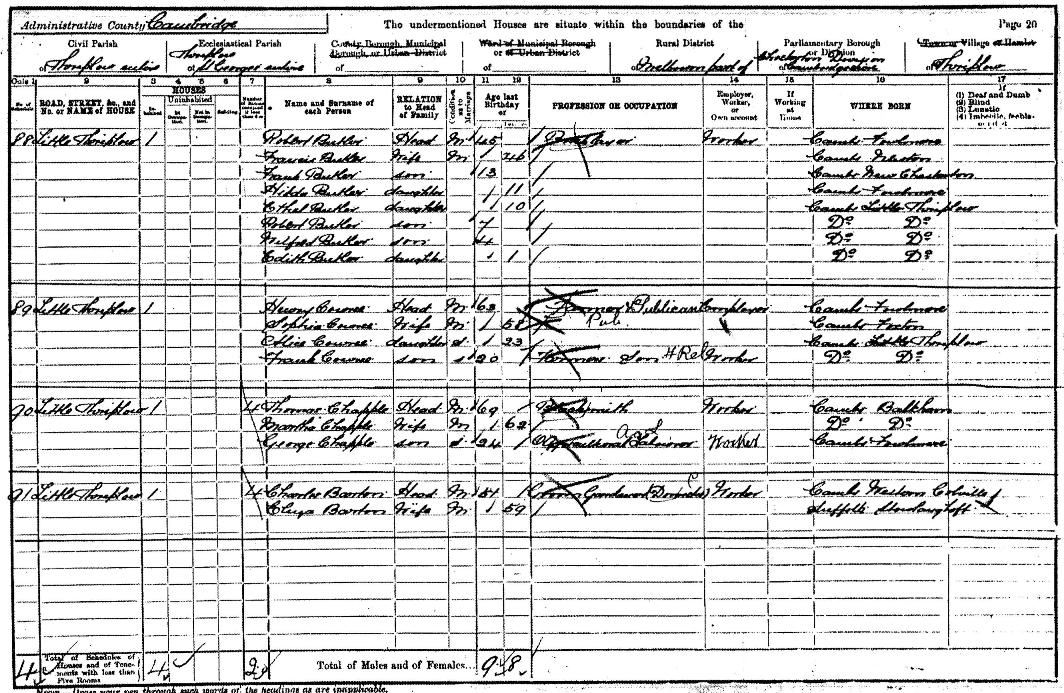 Administrative County Cambridge The undermentioned Houses are situate within the boundaries of the Page 20
Civil Parish Ecclesiastical Parish County Borough, Municipal Borough, or Urban District Ward of Municipal Borough or of Urban District Rural District Parliamentary Borough or Division Town or Village or Hamlet
of Thriplow entire of St Georges entire of of of Melbourn part of of Cambridgeshire of Thriplow
Cols 1 2 3 4 5 6 7 8 9 10 11 12 13 14 15 16 17
ROAD, STREET, &c., and No. or NAME of HOUSE HOUSES Uninhabited Name and Surname of each Person RELATION to Head of Family Condition as to Marriage Age last Birthday of PROFESSION OR OCCUPATION Employer, Worker, or Own account If Working at Home WHERE BORN If (1) Deaf and Dumb (2) Blind (3) Lunatic (4) Imbecile, feeble-minded
88 Little Thriplow 1 Robert Butler Head M 45 Worker Cambs Fowlmere
Francis Butler Wife M 36 Cambs
Frank Butler son 13 Cambs New Chesterton
Hilda Butler daughter 11 Cambs Fowlmere
Ethel Butler daughter 10 Cambs Little Thriplow
Robert Butler son 7 Do Do
Wilfred Butler son 4 Do Do
Edith Butler daughter 1 Do Do
89 Little Thriplow 1 Henry Head M 63 Farmer & Publican Employer Cambs Fowlmere
Pub
Sophia Wife M 58 Cambs Foxton
Alice daughter S 23 Cambs Little Thriplow
Frank son S 20 Farmers Son H Rel Worker Do Do
90 Little Thriplow 1 4 Thomas Chapple Head M 69 Blacksmith Worker Cambs Balsham
Martha Chapple Wife M 62 Do Do
George Chapple son S 24 Agricultural Labourer Worker Cambs Fowlmere
91 Little Thriplow 1 4 Charles Barton Head M 51 Groom Gardener (Domestic) Worker Cambs Weston Colville
Eliza Barton Wife M 59 Suffolk
4 Total of Schedules of Houses and of Tenements with less than Five Rooms 4 2 Total of Males and of Females... 9 8
Note.—Draw your pen through such words of the headings as are inapplicable.